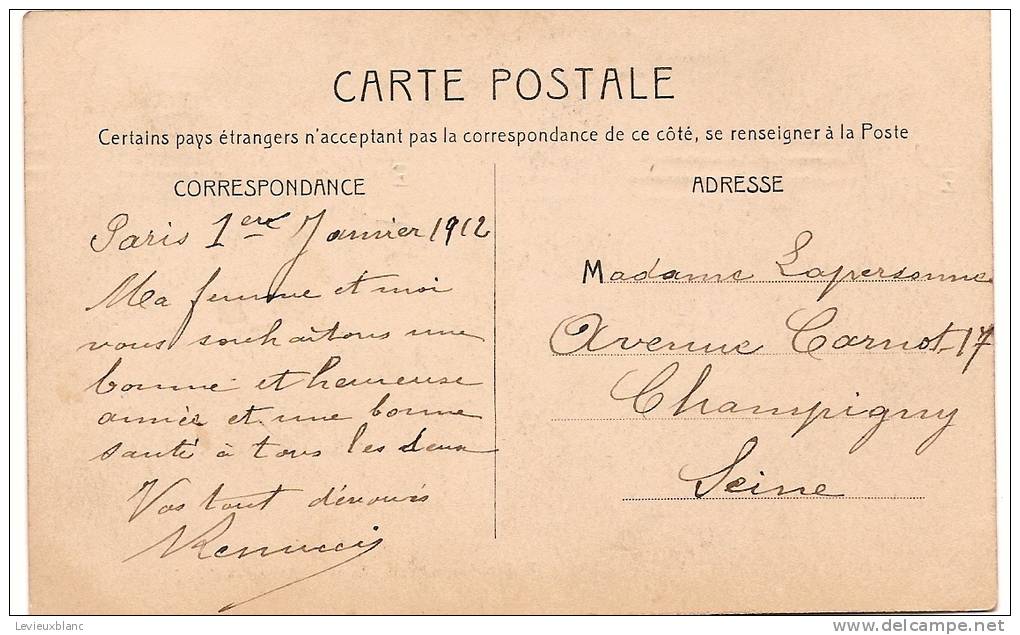 CARTE POSTALE
Certains pays étrangers n'acceptant pas la correspondance de ce côté, se renseigner à la Poste
CORRESPONDANCE
Paris 1ere Janvier 1912
Ma femme et moi
vous souhaitons une
bonne et heureuse
année et une bonne
santé à tous les deux
Vos tout dévoués
ADRESSE
Madame Lapersonne
Avenue Carnot 17
Champigny
Seine
Levieuxblanc
www.delcampe.net